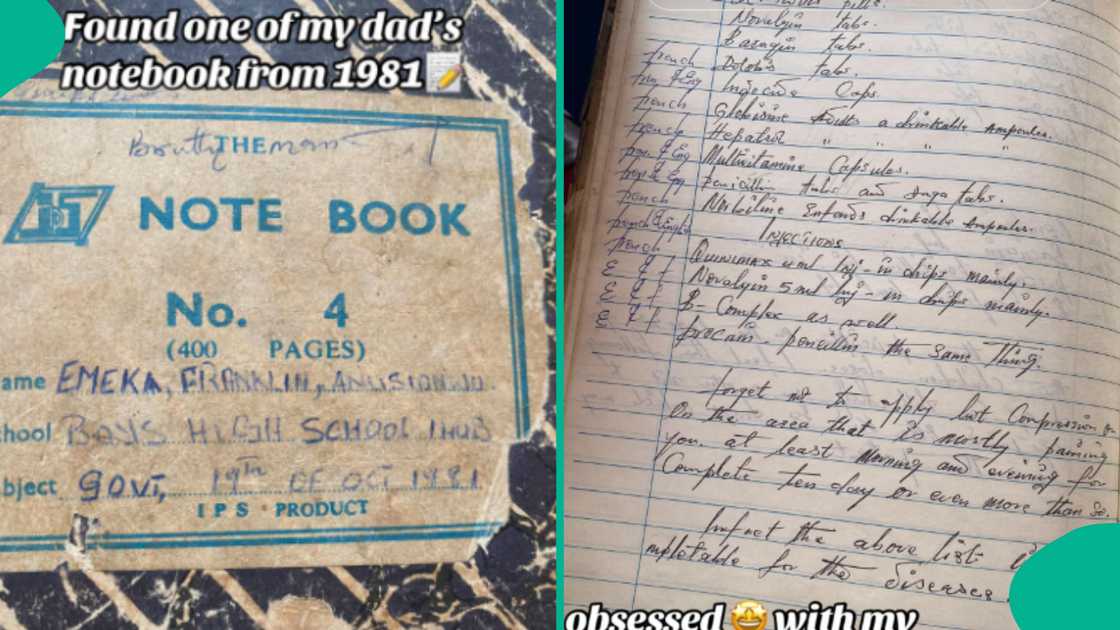 Found one of my dad's
notebook from 1981📝
THE
NOTE BOOK
No. 4
(400 PAGES)
ame EMEKA, FRANKLIN,
chool BOYS HIGH SCHOOL IHUB
bject GOVT, 19th OF OCT 1981
IPS PRODUCT
pills.
Novalgin tabs.
tabs.
french tabs.
Caps.
french a drinkable Ampoules.
french Hepatrol " " "
Multivitamine Capsules.
Penicillin tabs and tabs.
french drinkable Ampoules.
Injections
french QUINIMAX 4ml Inj - in drips mainly.
E & f Novalgin 5ml Inj - in drips mainly.
E & f B-Complex as well.
E & f procain-penicillin the same Thing.
forget not to apply hot Compression
On the area that is mostly paining
you. at least Morning and evening for
Complete ten day or even more than so.
the above list
for the diseases.
obsessed 🤩 with my